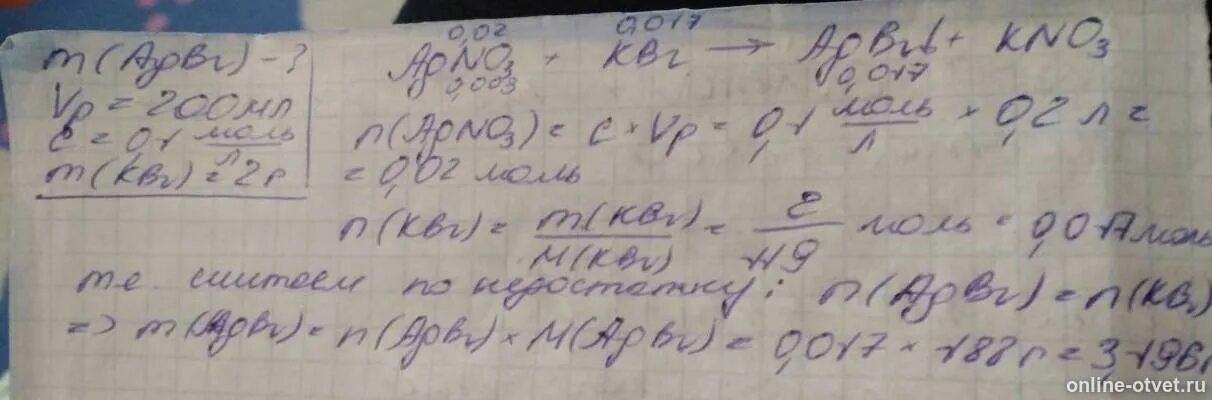 m(AgBr) - ?
Vр = 200 мл
C = 0,1 моль/л
m(KBr) = 2г
0,02 0,017
AgNO₃ + KBr → AgBr↓ + KNO₃
0,003 0,017
n(AgNO₃) = C × Vр = 0,1 моль/л × 0,2 л =
= 0,02 моль
n(KBr) = m(KBr)/M(KBr) = 2/119 моль = 0,017 моль
т.е. считаем по недостатку: n(AgBr) = n(KBr)
=> m(AgBr) = n(AgBr) × M(AgBr) = 0,017 × 188 г = 3,196 г
online-otvet.ru